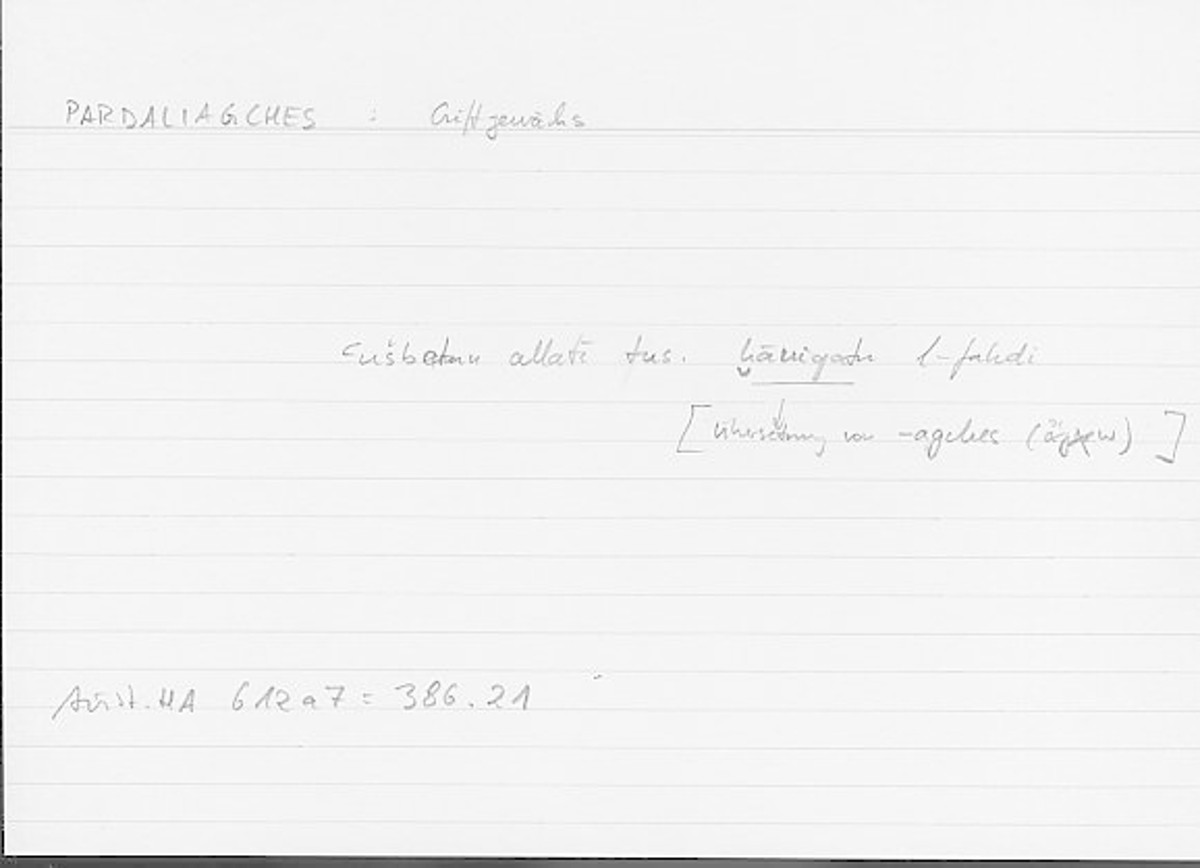 PARDALIAGCHES : Giftgewächs
ʿušbatun allatī tus. ḫāniqatu l-fahdi
[Übersetzung von -agches (ἄγχειν)]
Arist. HA 612a7 = 386.21